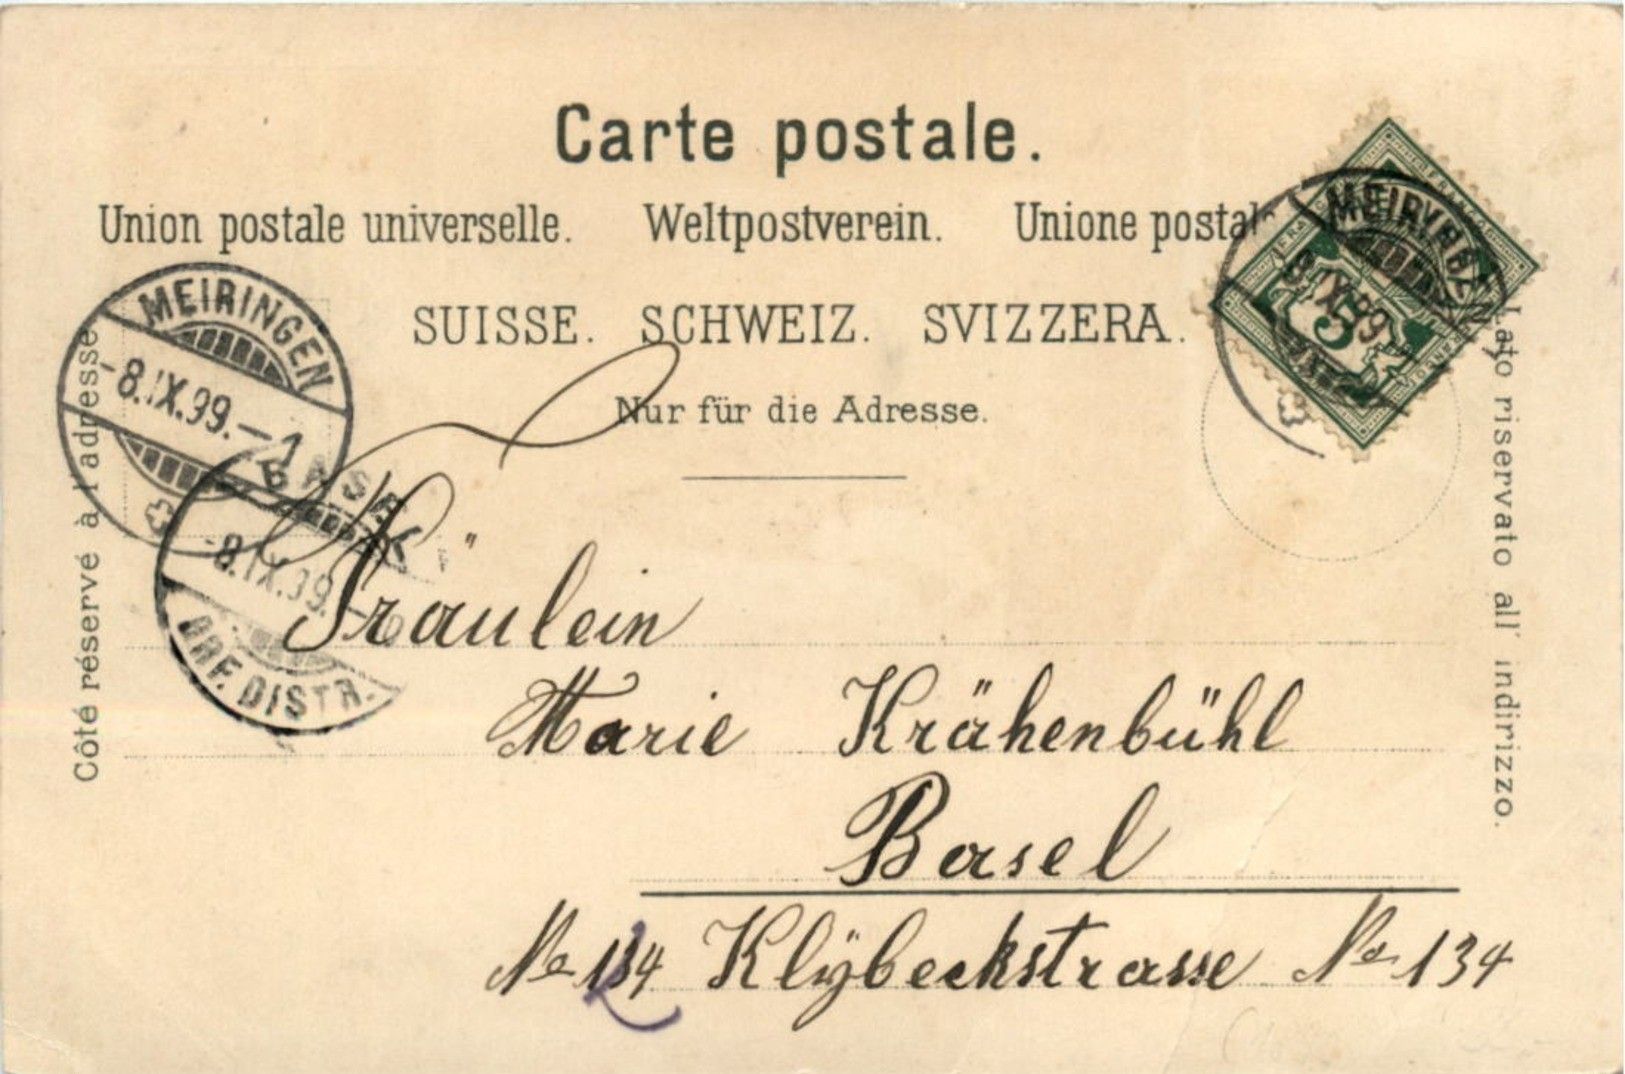 Carte postale.
Union postale universelle. Weltpostverein. Unione postale
SUISSE. SCHWEIZ. SVIZZERA.
Nur für die Adresse.
Côté réservé à l'adresse
Lato riservato all' indirizzo.
MEIRINGEN
8.IX.99.
5
MEIRINGEN
-8.IX.99.-1
BASEL
-8.IX.99.
BRF. DISTR.
Fräulein
Marie Krähenbühl
Basel
No 134 Klÿbeckstrasse No 134